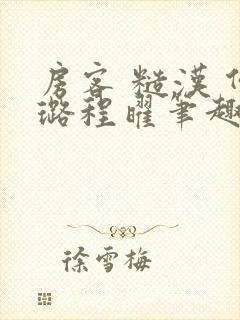 房客 糙汉
璐程曜笔趣
徐雪梅